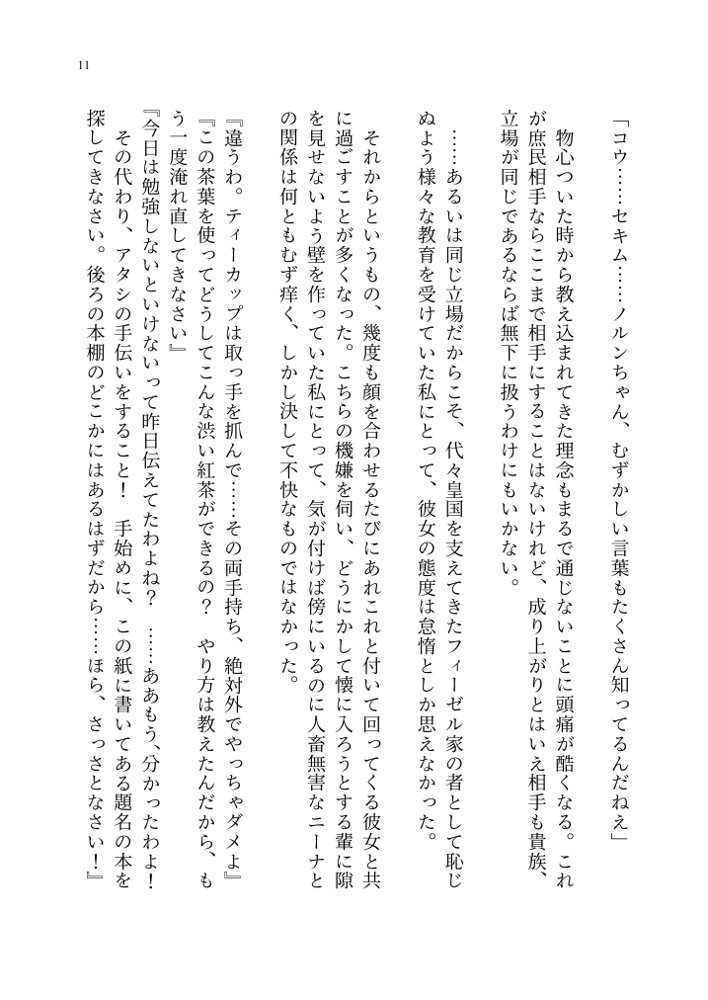 11
「コウ……セキム……ノルンちゃん、むずかしい言葉もたくさん知ってるんだねえ」
　物心ついた時から教え込まれてきた理念もまるで通じないことに頭痛が酷くなる。これ
が庶民相手ならここまで相手にすることはないけれど、成り上がりとはいえ相手も貴族、
立場が同じであるならば無下に扱うわけにもいかない。
　……あるいは同じ立場だからこそ、代々皇国を支えてきたフィーゼル家の者として恥じ
ぬよう様々な教育を受けていた私にとって、彼女の態度は怠惰としか思えなかった。
　それからというもの、幾度も顔を合わせるたびにあれこれと付いて回ってくる彼女と共
に過ごすことが多くなった。こちらの機嫌を伺い、どうにかして懐に入ろうとする輩に隙
を見せないよう壁を作っていた私にとって、気が付けば傍にいるのに人畜無害なニーナと
の関係は何ともむず痒く、しかし決して不快なものではなかった。
『違うわ。ティーカップは取っ手を抓んで……その両手持ち、絶対外でやっちゃダメよ』
『この茶葉を使ってどうしてこんな渋い紅茶ができるの？　やり方は教えたんだから、も
う一度淹れ直してきなさい』
『今日は勉強しないといけないって昨日伝えてたわよね？　……ああもう、分かったわよ！
　その代わり、アタシの手伝いをすること！　手始めに、この紙に書いてある題名の本を
探してきなさい。後ろの本棚のどこかにはあるはずだから……ほら、さっさとなさい！』